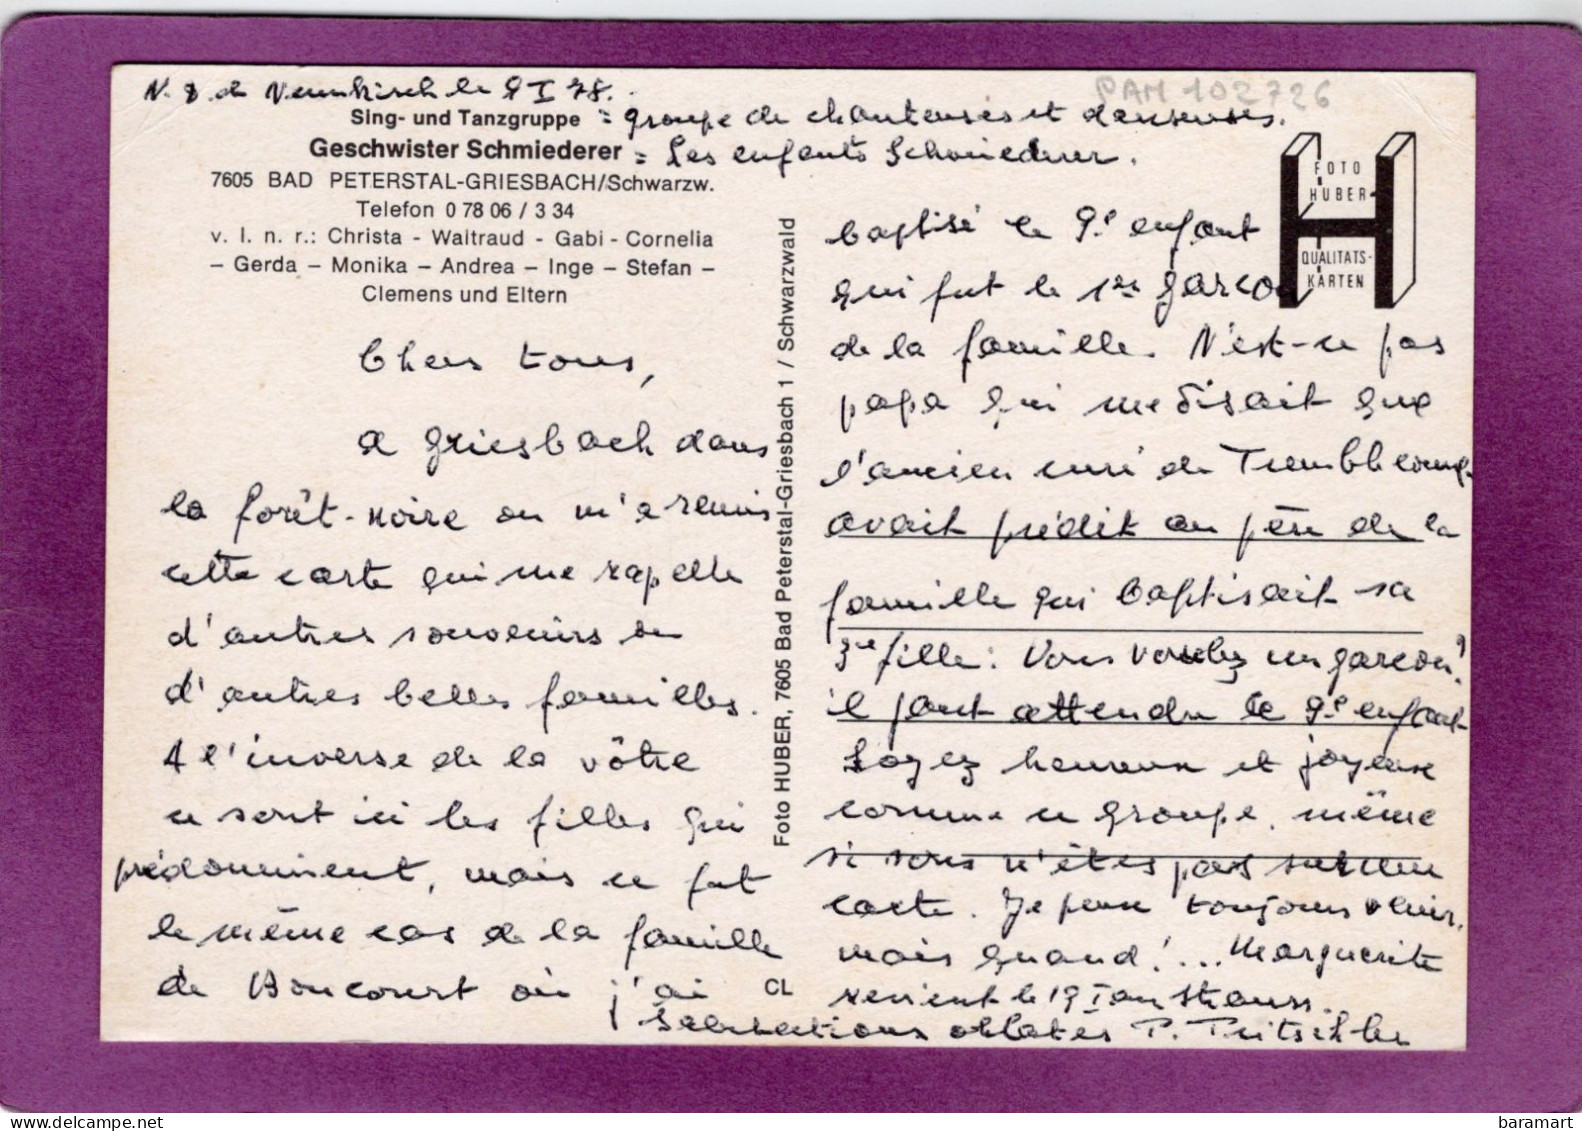 N. D. de Neunkirch le 9 I 78.
PAM 102726
Sing- und Tanzgruppe = groupe de chanteuses et danseuses.
Geschwister Schmiederer = Les enfants Schmiederer.
7605 BAD PETERSTAL-GRIESBACH/Schwarzw.
Telefon 0 78 06 / 3 34
v. l. n. r.: Christa - Waltraud - Gabi - Cornelia
– Gerda – Monika – Andrea – Inge – Stefan –
Clemens und Eltern
Chers tous,
a Griesbach dans
la forêt-noire on m'a remis
cette carte qui me rapelle
d'autres souvenirs ou
d'autres belles familles.
A l'inverse de la vôtre
ce sont ici les filles qui
prédominent, mais ce fut
le même cas de la famille
de Honcourt où j'ai
CL
Foto HUBER, 7605 Bad Peterstal-Griesbach 1 / Schwarzwald
FOTO
HUBER
QUALITATS-
KARTEN
baptisé le 9e enfant
qui fut le 1er garçon
de la famille. N'est-ce pas
papa qui me disait que
l'ancien curé de
avait prédit au père de la
famille qui baptisait sa
3e fille: Vous voulez un garçon?
il faut attendre le 9e enfant
Soyez heureux et joyeux
comme ce groupe, même
si vous n'êtes pas sur une
carte. Je peux toujours venir,
mais quand!... Marguerite
revient le 19 Jan Strasb.
Salutations oblates P. Pritschler
baramart
delcampe.net